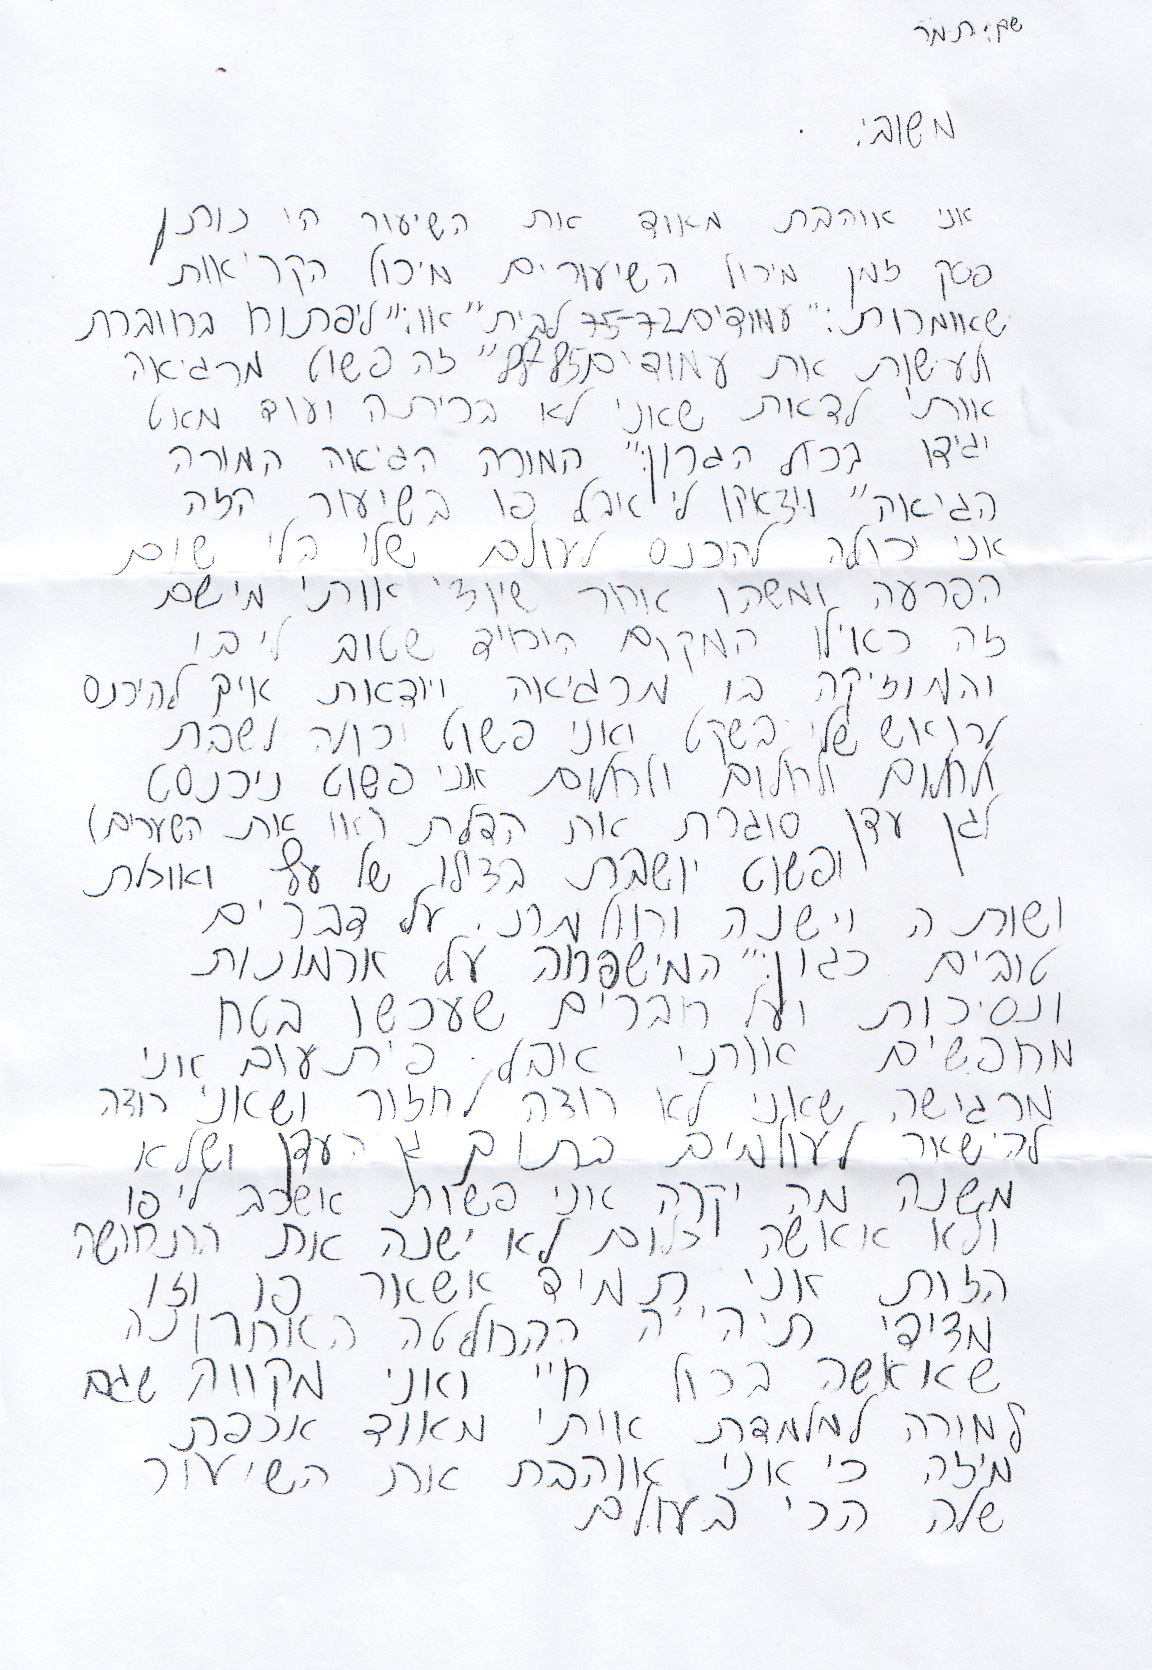 שם: תמר
משוב:
אני אוהבת מאוד את השיעור הי נותן
פסק זמן מיכול השיעורים מיכול הקריאות
שאומרות: "עמודים 75-72 לבית" או: "ליפתוח בחוברת
ולעישות את עמודים" זה פשוט מרגיאה
אותי לדאת שאני לא בכיתה ועוד מאט
יגידו בכול הגרון: "המורה הגיאה המורה
הגיאה" ויצאקו לי אבל פו בשיעור הזה
אני יכולה להיכנס לעולם שלי בלי שום
הפרעה ומשהו אחר שיוצי אותי מישם
זה כאילו המקום היחיד שטוב לי בו
והמוזיקה בו מרגיאה ויודאת איך להיכנס
לרואש שלי בשקט ואני פשוט יכולה לשבת
לחלום ולחלום ולחלום אני פשוט ניכנסט
לגן עדן סוגרת את הדלת (או את השערים)
ופשוט יושבת בצילו של עץ ואוכלת
ושותה וישנה וחולמת. על דברים
טובים כגון: "המישפחה על ארמונות
ונסיכות ועל חברים שעכשו בטח
מחפשים אותי אבל פיתעום אני
מרגישה שאני לא רוצה לחזור ושאני רוצה
להישאר לעולמים בתוך גן העדן ושלא
משנה מה יקרה אני פשות אשכב לי פו
ולא אאשה כלום לא ישנה את התחושה
הזות אני תמיד אשאר פו וזו
מצידי תיהייה ההחלטה האחרונה
שאאשה בכול חיי ואני מקווה שגם
למורה למלמדת אותי מאוד אכפת
מיזה כי אני אוהבת את השיעור
שלה הכי בעולם